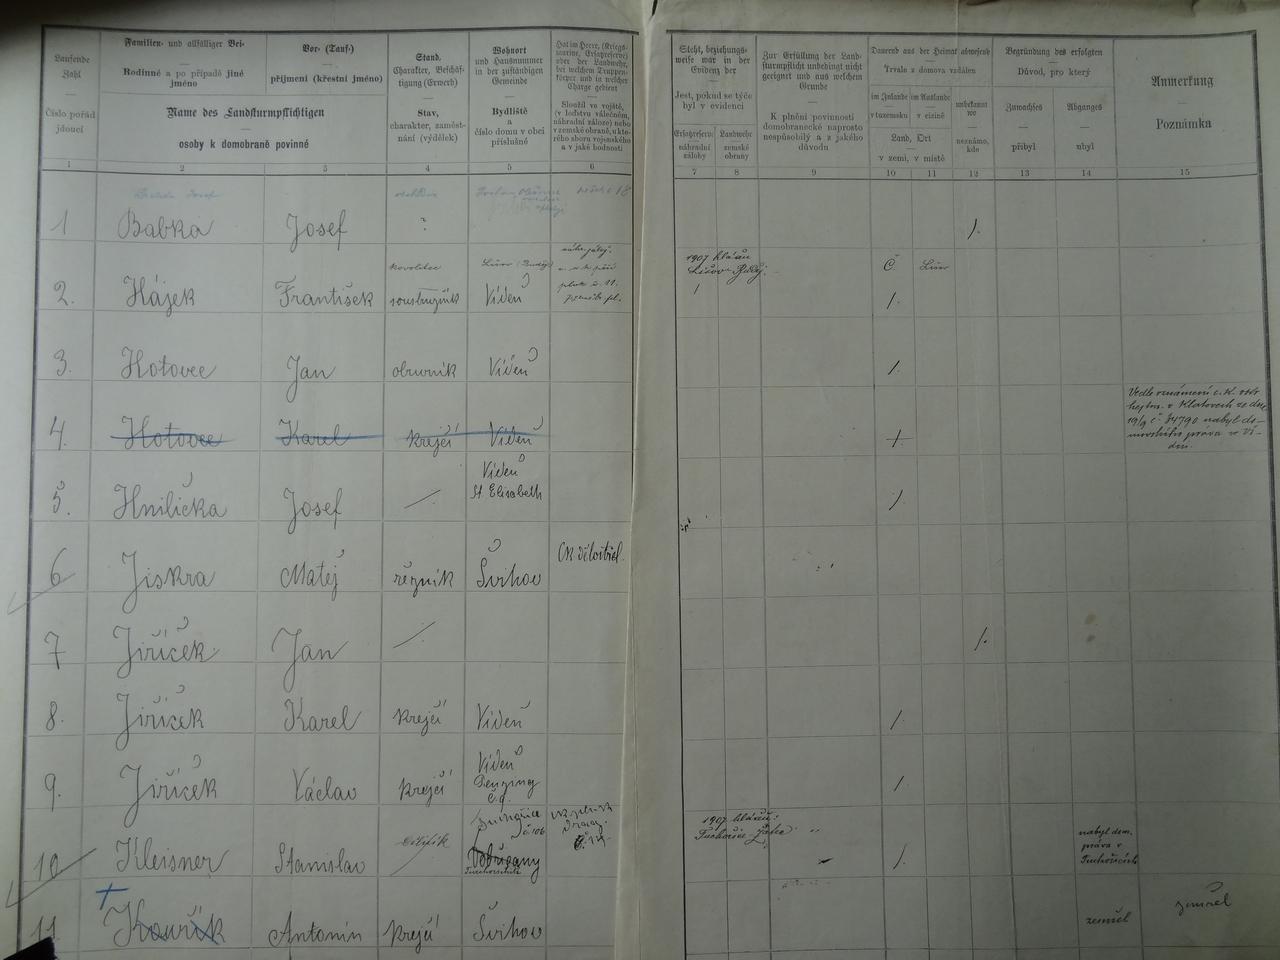 Laufende Zahl
—
Číslo pořád jdoucí
Familien- und allfälliger Bei-
—
Rodinné a po případě jiné jméno
Vor- (Tauf-)
—
příjmení (křestní jméno)
Name des Landsturmpflichtigen
—
osoby k domobraně povinné
Stand, Charakter, Beschäf-
tigung (Erwerb)
—
Stav,
charakter, zaměst-
nání (výdělek)
Wohnort
und Hausnummer
in der zuständigen
Gemeinde
—
Bydliště
a
číslo domu v obci
příslušné
Hat im Heere, (Kriegs-
marine, Ersatzreserve)
oder der Landwehr,
bei welchem Truppen-
körper und in welcher
Charge gedient
—
Sloužil ve vojště,
(v loďstvu válečném,
náhradní záloze) nebo
v zemské obraně, u kte-
rého sboru vojenského
a v jaké hodnosti
Steht, beziehungs-
weise war in der
Evidenz der
—
Jest, pokud se týče
byl v evidenci
Ersatzreserve
náhradní
zálohy
Landwehr
zemské
obrany
Zur Erfüllung der Land-
sturmpflicht unbedingt nicht
geeignet und aus welchem
Grunde
—
K plnění povinnosti
domobranecké naprosto
nespůsobilý a z jakého
důvodu
Dauernd aus der Heimat abwesend
—
Trvale z domova vzdálen
im Inlande
v tuzemsku
im Auslande
v cizině
Land, Ort
—
v zemi, v místě
unbekannt
wo
—
neznámo,
kde
Begründung des erfolgten
—
Důvod, pro který
Zuwachses
—
přibyl
Abganges
—
ubyl
Anmerkung
—
Poznámka
1 2 3 4 5 6 7 8 9 10 11 12 13 14 15
1 Babka Josef ? /.
2. Hájek František soustružník Vídeň 1907 /.
3. Hotovec Jan obuvník Vídeň /.
4. Hotovec Karel krejčí Vídeň
Vedle oznámení c. k. okr.
hejtm. v Klatovech ze dne
19/9 č. 34790 nabyl do-
movského práva ve Ví-
dni.
5. Hnilička Josef Vídeň
St Elisabeth /.
6 Jiskra Matěj řezník Švihov Ck dělostřel.
7 Jiříček Jan /.
8. Jiříček Karel krejčí Vídeň /.
9. Jiříček Václav krejčí Vídeň
Penzing /.
10 Kleisner Stanislav 1907 /.
nabyl dom.
práva v
Tuchořicích
11. Kouřík Antonín krejčí Švihov zemřel zemřel